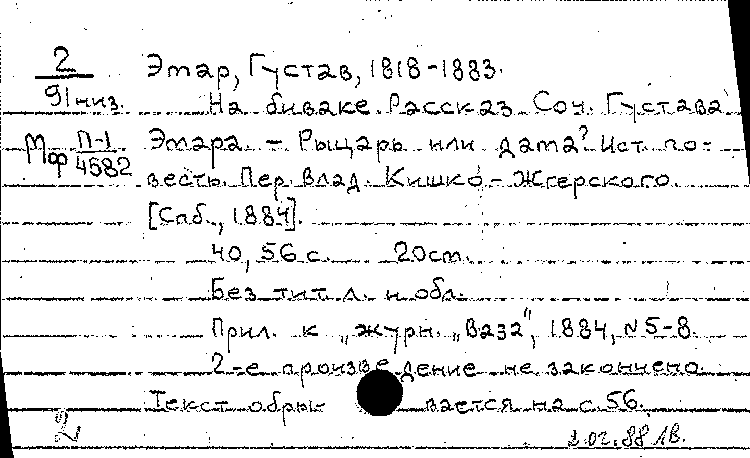 2
91 низ.
Мф П-1
4582
Эмар, Густав, 1818-1883.
На биваке. Рассказ. Соч. Густава
Эмара. – Рыцарь или дама? Ист. по-
весть. Пер. Влад. Кишко-Жгерского.
[Спб., 1884].
40, 56 с. 20 см.
Без тит. л. и обл.
Прил. к „журн. „Ваза", 1884, №5-8.
2-е произведение не закончено.
Текст обры- вается на с. 56.
2
2.02.88